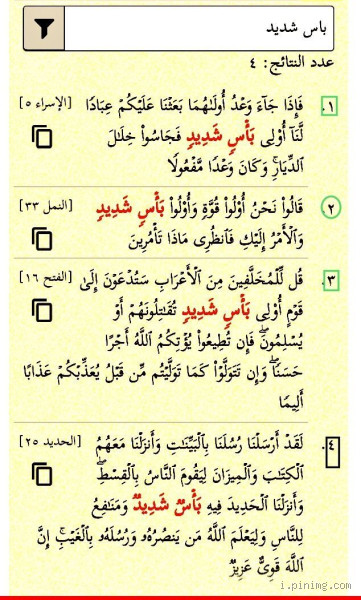 باس شديد
عدد النتائج: ٤
١. فَإِذَا جَآءَ وَعْدُ أُولَىٰهُمَا بَعَثْنَا عَلَيْكُمْ عِبَادًا [الإسراء ٥]
لَّنَآ أُو۟لِى بَأْسٍ شَدِيدٍ فَجَاسُوا۟ خِلَـٰلَ
ٱلدِّيَارِ ۚ وَكَانَ وَعْدًا مَّفْعُولًا
٢ قَالُوا۟ نَحْنُ أُو۟لُوا۟ قُوَّةٍ وَأُو۟لُوا۟ بَأْسٍ شَدِيدٍ [النمل ٣٣]
وَٱلْأَمْرُ إِلَيْكِ فَٱنظُرِى مَاذَا تَأْمُرِينَ
٣. قُل لِّلْمُخَلَّفِينَ مِنَ ٱلْأَعْرَابِ سَتُدْعَوْنَ إِلَىٰ [الفتح ١٦]
قَوْمٍ أُو۟لِى بَأْسٍ شَدِيدٍ تُقَـٰتِلُونَهُمْ أَوْ
يُسْلِمُونَ ۖ فَإِن تُطِيعُوا۟ يُؤْتِكُمُ ٱللَّهُ أَجْرًا
حَسَنًا ۖ وَإِن تَتَوَلَّوْا۟ كَمَا تَوَلَّيْتُم مِّن قَبْلُ يُعَذِّبْكُمْ عَذَابًا
أَلِيمًا
٤. لَقَدْ أَرْسَلْنَا رُسُلَنَا بِٱلْبَيِّنَـٰتِ وَأَنزَلْنَا مَعَهُمُ [الحديد ٢٥]
ٱلْكِتَـٰبَ وَٱلْمِيزَانَ لِيَقُومَ ٱلنَّاسُ بِٱلْقِسْطِ ۖ
وَأَنزَلْنَا ٱلْحَدِيدَ فِيهِ بَأْسٌ شَدِيدٌ وَمَنَـٰفِعُ
لِلنَّاسِ وَلِيَعْلَمَ ٱللَّهُ مَن يَنصُرُهُۥ وَرُسُلَهُۥ بِٱلْغَيْبِ ۚ إِنَّ
ٱللَّهَ قَوِىٌّ عَزِيزٌ
i.pinimg.com